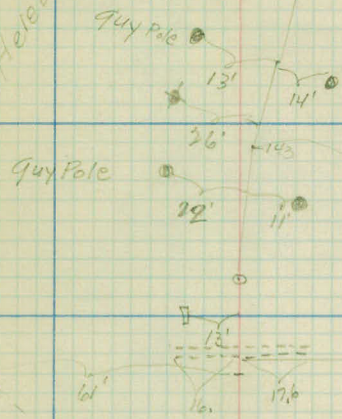 guy Pole
13'
14'
26'
143
guy Pole
22'
11'
13'
61'
16.
17.6